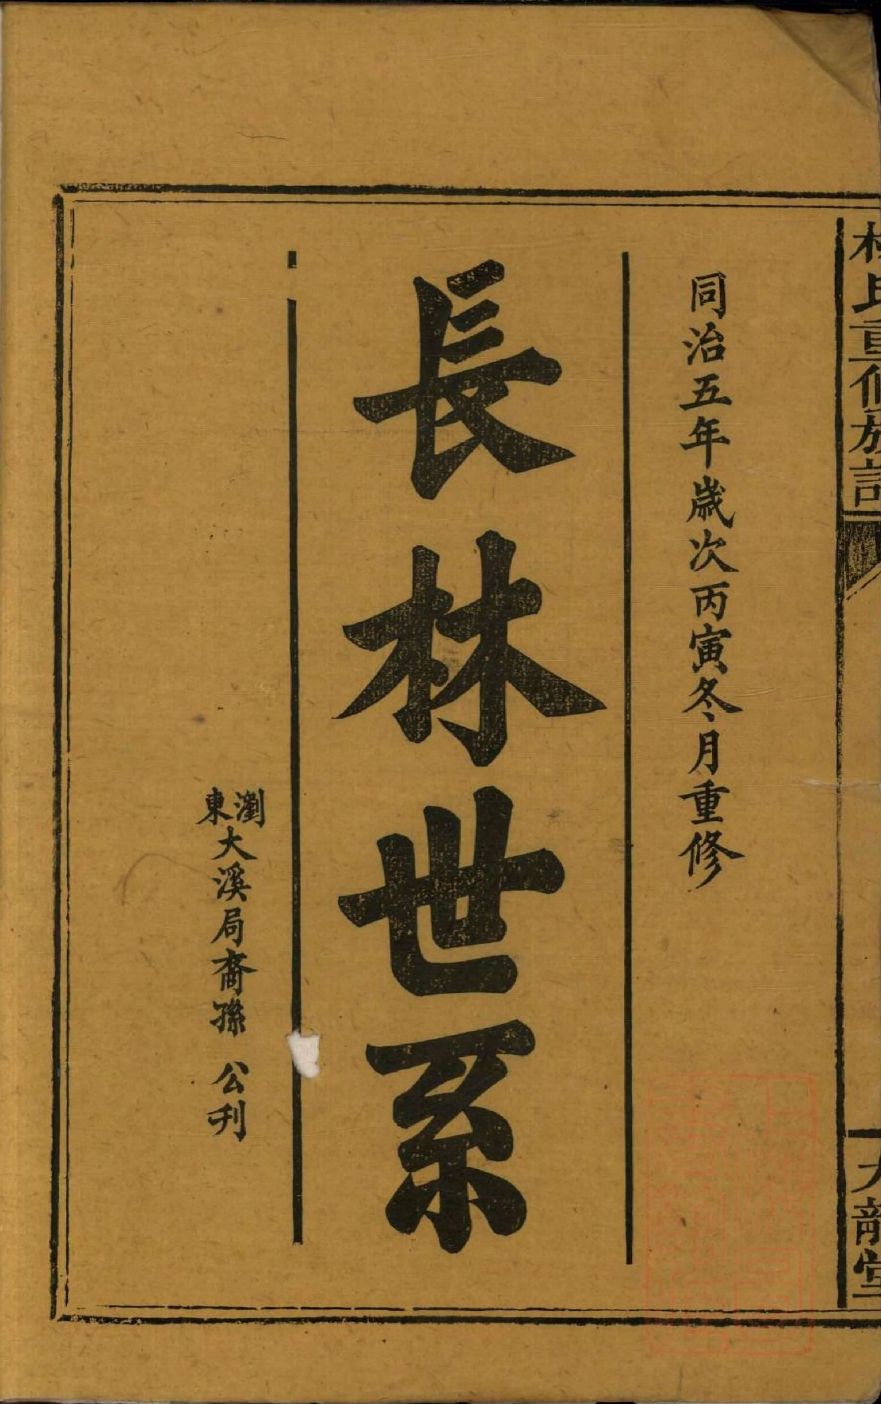 林氏重修族譜
九龍堂
同治五年歲次丙寅冬月重修
長林世系
瀏東大溪局裔孫 公刋